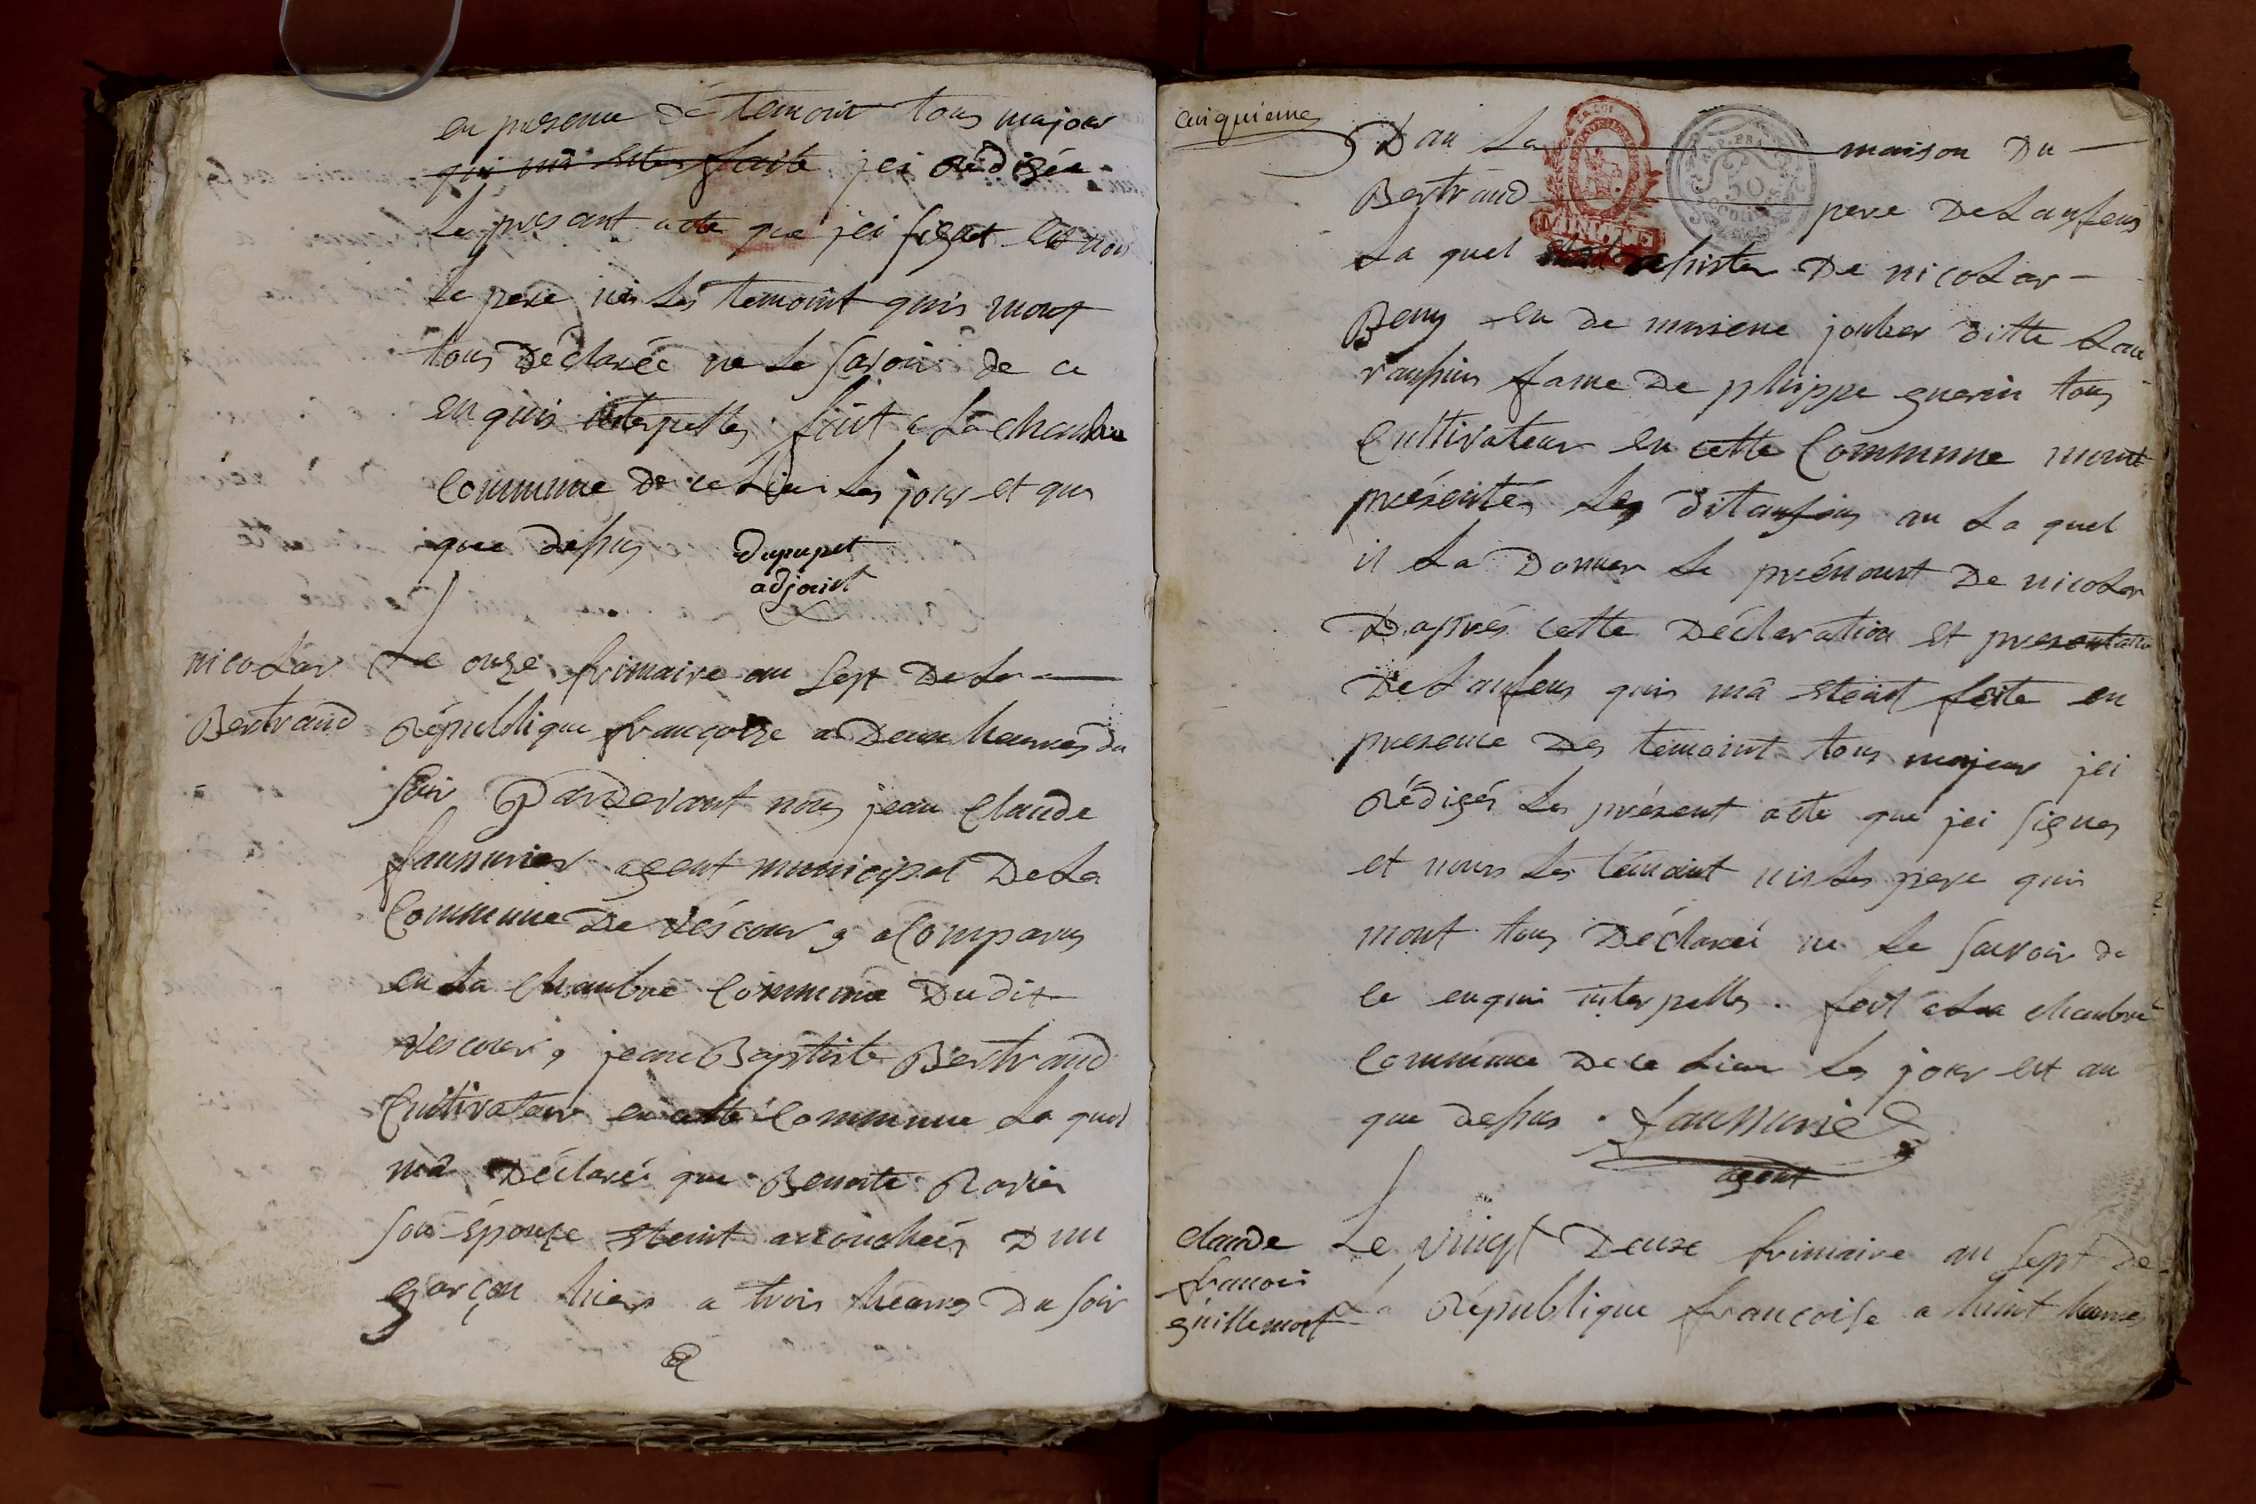 en presence de temoint tous majour
qui mâ eter faite jei rédigér
Le present acte que jei signet et non
Le pere nis Les temoint quis mont
tous Déclaréé ne Le savoir de ce
enquis interpelles fait a La chambre
Commune De ce Lieu Les jour et que
que desus
Dupupet
adjoint
nicolas
Bertrand
Le onze frimaire an sept De La
République françoize a Deux heures du
soir Pardevant nous jean Claude
faunurier agent municipal De La
Commune De véscour, a Comparus
en La chambre Commune Dudit
vescour, jean Baptiste Bertrand
Cultivateur en cette Commune La quel
mâ Déclaréi que Benoite Ravier
son épouze eteint accouchéés D'un
garçon hier a trois heures Du soir
cinquieme
Dan La maison Du
Bertrand pere De Lenfens
La quel assister De nicolas
Beny en De mariene jouber ditte
fame De phippe guerin tous
Cultivateur en cette Commune mont
présentés Les dit au La quel
il La Donner Le prénomt De nicolas
D'aprés cette Déclaration et presentation
De Lenfens quis mâ eteint feite en
presence Des temoint tous majeur jei
rédigér Les présent acte que jei signes
et nours Les témoint nis Les pere quis
mont tous Déclaréi ne Le savoir de
ce enquis interpelles . feit a La chambre
Commune De ce Lieu Les jour est an
que desus . faunurier
agent
claude
francoi
guillemot
Le vingt Deuze frimaire an sept De
La République françoise a huint heures